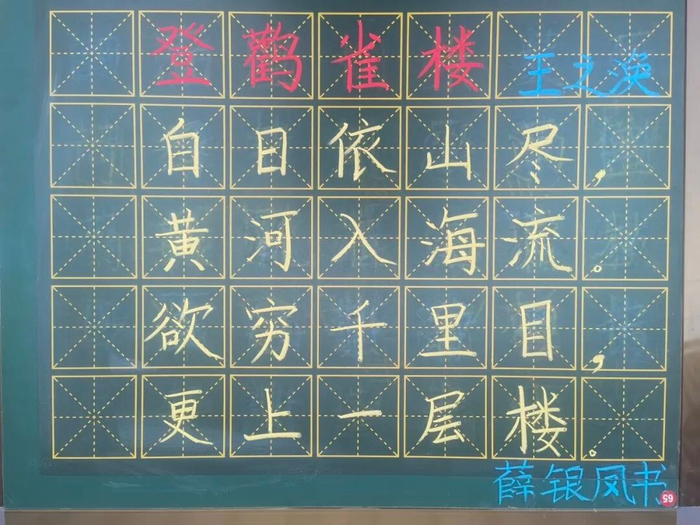 登鹳雀楼 王之涣
白日依山尽，
黄河入海流。
欲穷千里目，
更上一层楼。
薛银凤书
65